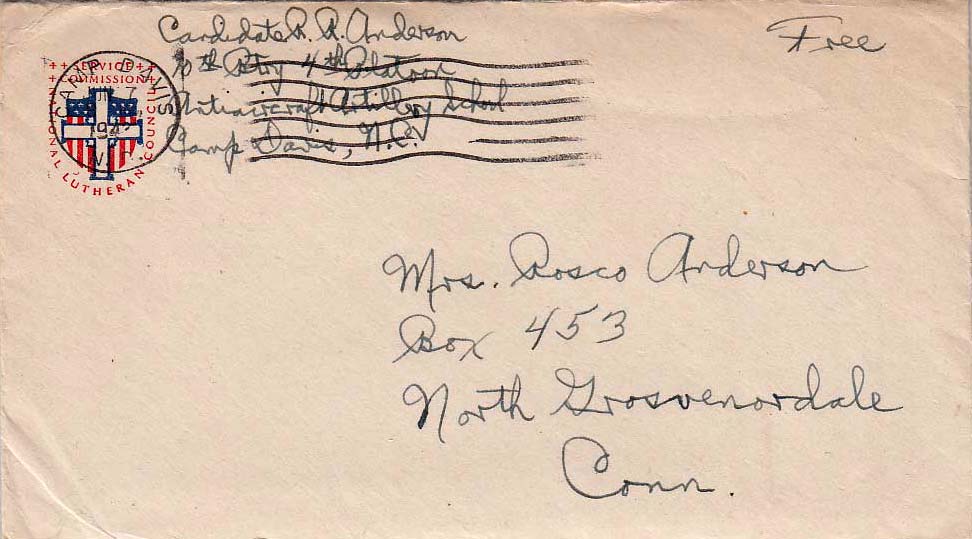 Candidate R. A. Anderson
10th Btry 4th Platoon
Antiaircraft Artillery School
Camp Davis, N.C.
Free
SERVICE COMMISSION
NATIONAL LUTHERAN COUNCIL
CAMP DAVIS
JUN 7
N.C.
Mrs. Rosco Anderson
Box 453
North Grosvenordale
Conn.